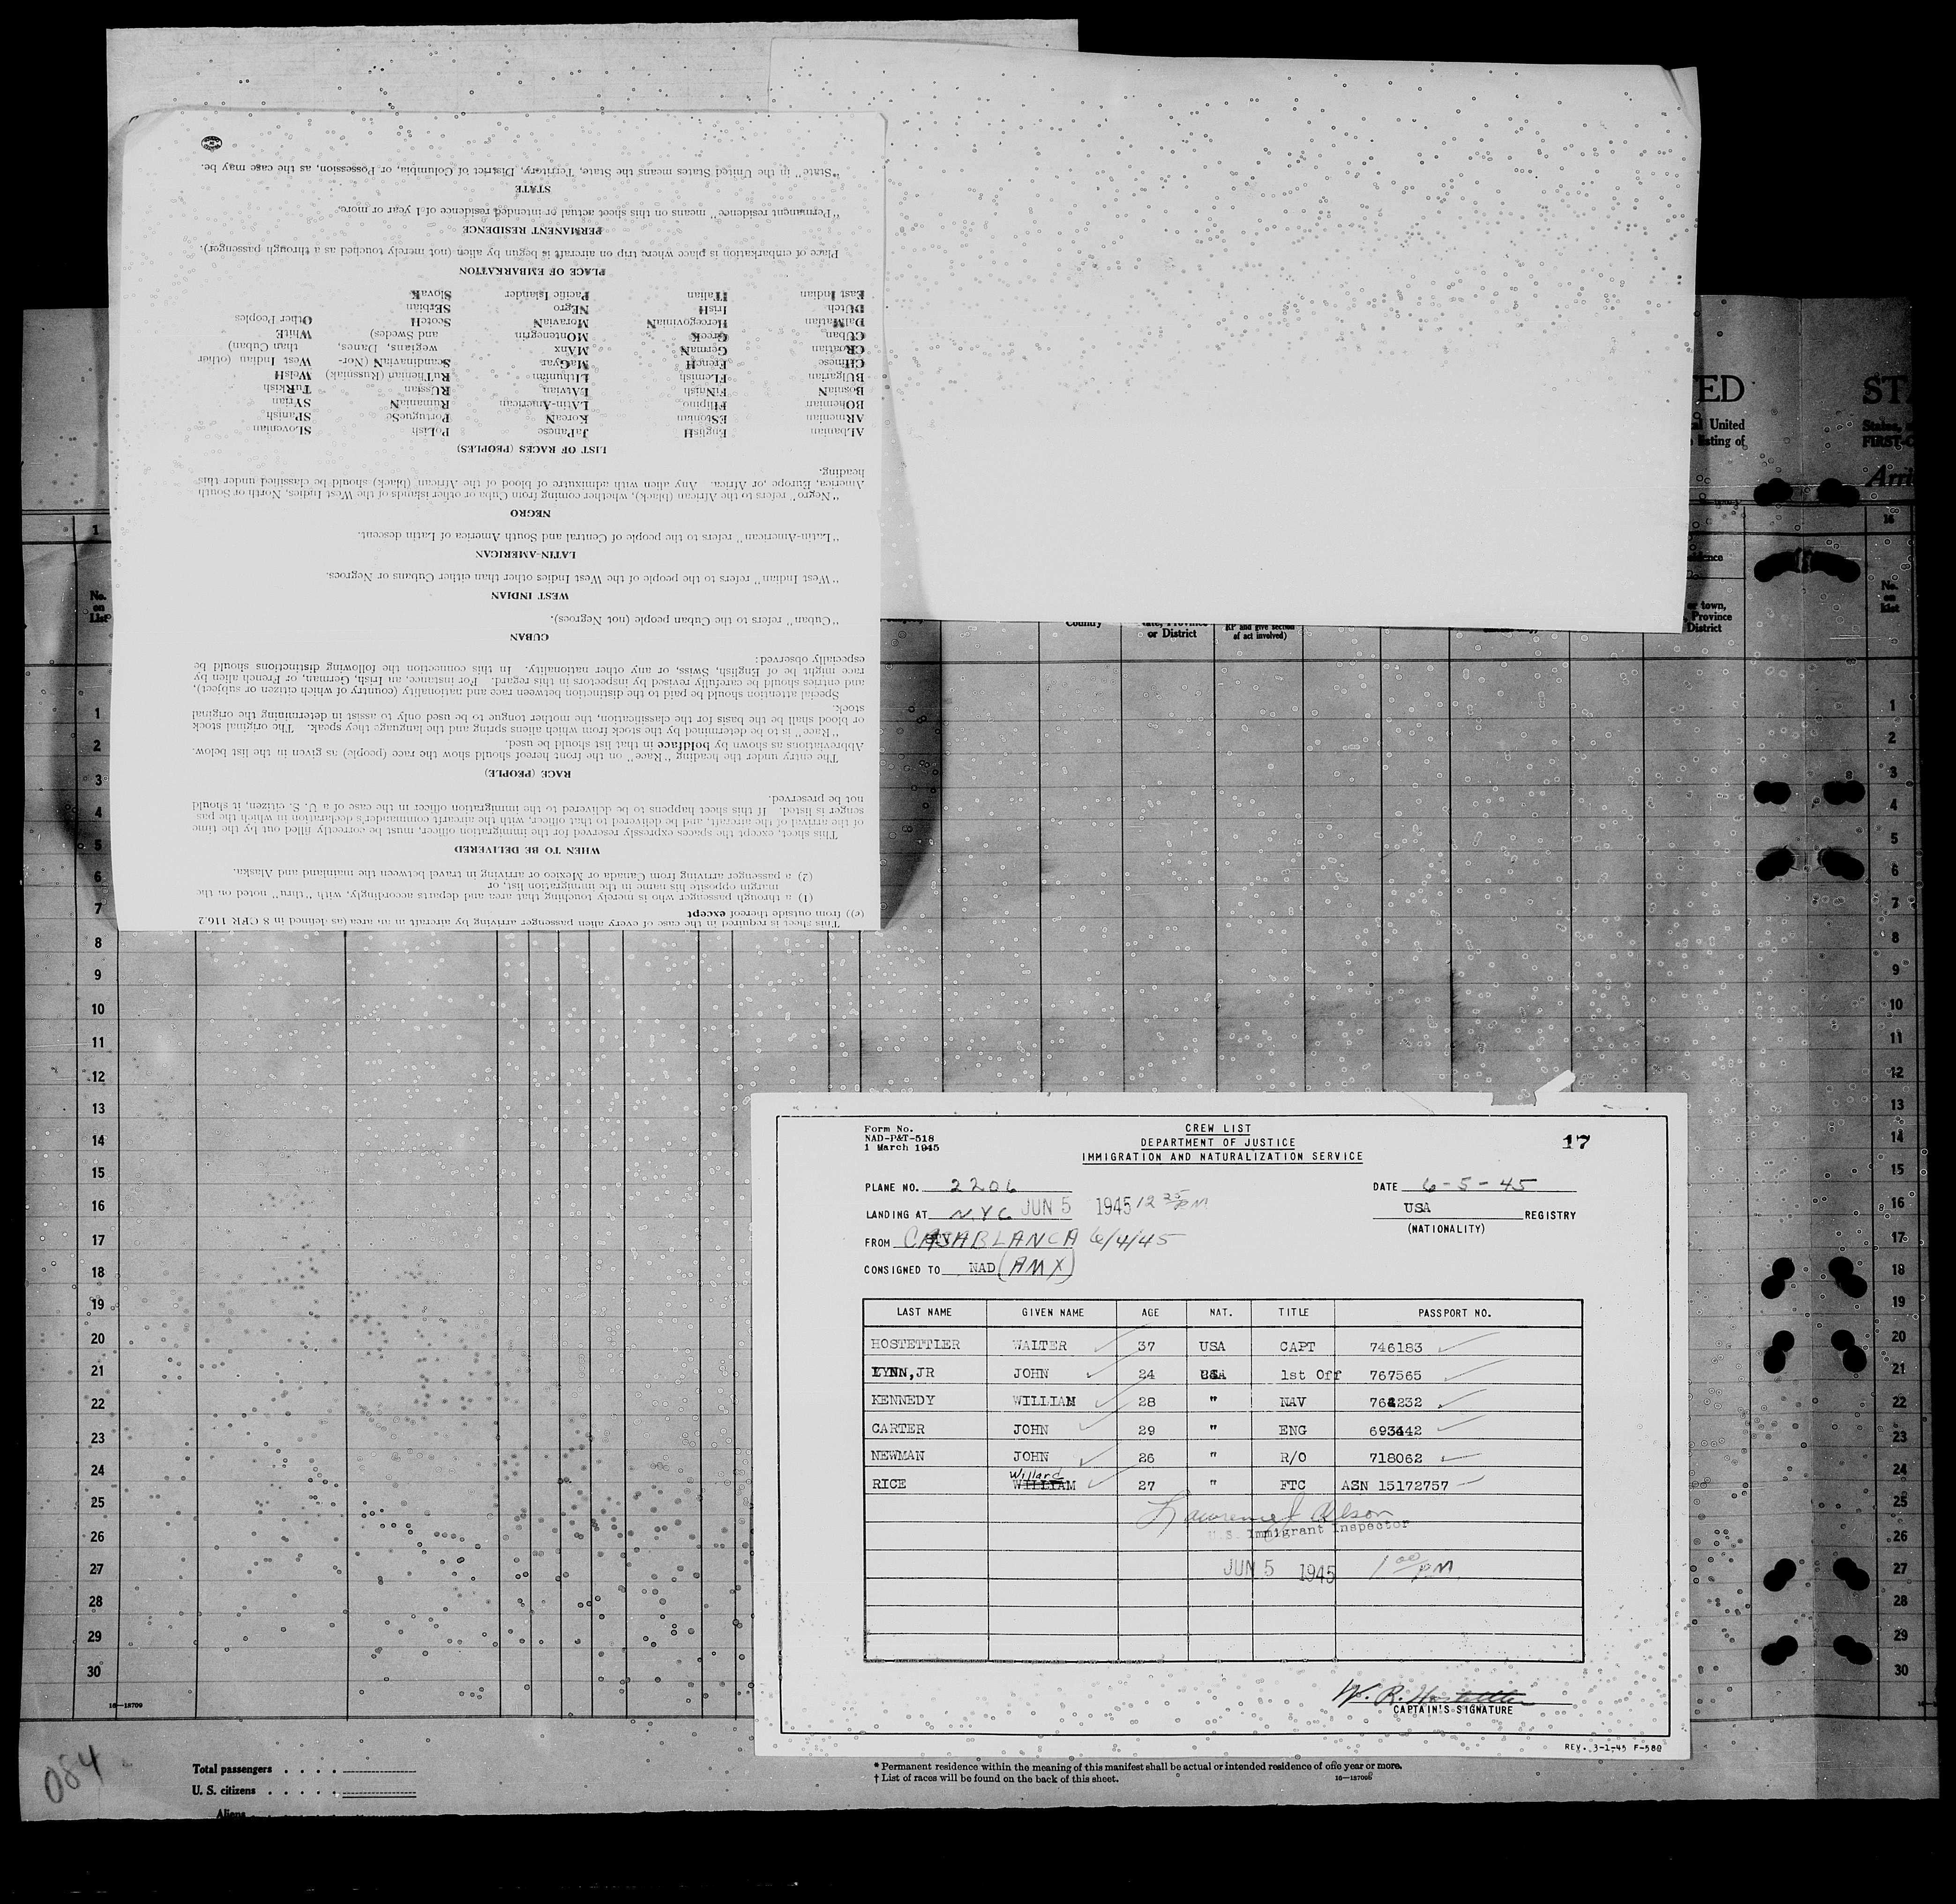 "State" in the United States means the State, Territory, District of Columbia, or Possession, as the case may be.
STATE
"Permanent residence" means on this sheet actual or intended residence of 1 year or more.
PERMANENT RESIDENCE
Place of embarkation is place where trip on aircraft is begun by alien (not merely touched as a through passenger).
PLACE OF EMBARKATION
East Indian ITalian Pacific Islander SlovaK
DUtch IrisH NEgro SErbian
DalMatian HercegovinaN MoraviaN ScotcH Other Peoples
CUban GreeK MOntenegrin ScandinaviaN (Norwegians, Danes, and Swedes) WhitE
CRoatian GermaN MAnx West Indian (other than Cuban)
CHinese FrencH MaGyar
BUlgarian FLemish LIthunian RuThenian (Rusniak) WelsH
BosniaN FiNnish LAtvian RUssian TuRkish
BOhemian FIlipino LATin-American RumaniaN SYrian
ARmenian EStonian KoreaN PortugueSe SPanish
ALbanian EnglisH JaPanese PoLish SLovenian
LIST OF RACES (PEOPLES)
"Negro" refers to the African (black), whether coming from Cuba or other islands of the West Indies, North or South
America, Europe, or Africa. Any alien with admixture of blood of the African (black) should be classified under this
heading.
NEGRO
"Latin-American" refers to the people of Central and South America of Latin descent.
LATIN-AMERICAN
"West Indian" refers to the people of the West Indies other than either Cubans or Negroes.
WEST INDIAN
"Cuban" refers to the Cuban people (not Negroes).
CUBAN
Special attention should be paid to the distinction between race and nationality (country of which citizen or subject),
and entries should be carefully revised by inspectors in this regard. For instance, an Irish, German, or French alien by
race might be of English, Swiss, or any other nationality. In this connection the following distinctions should be
especially observed:
"Race" is to be determined by the stock from which aliens spring and the language they speak. The original stock
or blood shall be the basis for the classification, the mother tongue to be used only to assist in determining the original
stock.
The entry under the heading "Race" on the front hereof should show the race (people) as given in the list below.
Abbreviations as shown by boldface in that list should be used.
RACE (PEOPLE)
This sheet, except the spaces expressly reserved for the immigration officer, must be correctly filled out by the time
of the arrival of the aircraft, and be delivered to that officer, with the aircraft commander's declaration in which the pas-
senger is listed. If this sheet happens to be delivered to the immigration officer in the case of a U. S. citizen, it should
not be preserved.
WHEN TO BE DELIVERED
(2) a passenger arriving from Canada or Mexico or arriving in travel between the mainland and Alaska.
(1) a through passenger who is merely touching that area and departs accordingly, with "thru" noted on the
margin opposite his name in the immigration list, or
This sheet is required in the case of every alien passenger arriving by aircraft in an area (as defined in 8 CFR 116.2
(e)) from outside thereof except
ED STA
United States,
listing of FIRST-C
Arri
1 16
No. on List
Country
or District
RP and give section
of act involved)
or town,
Province
District
No. on List
1 1
2 2
3 3
4 4
5 5
6 6
7 7
8 8
9 9
10 10
11 11
12 12
13 13
14 14
15 15
16 16
17 17
18 18
19 19
20 20
21 21
22 22
23 23
24 24
25 25
26 26
27 27
28 28
29 29
30 30
16—18709
Form No.
NAD-P&T-518
1 March 1945
CREW LIST
DEPARTMENT OF JUSTICE
IMMIGRATION AND NATURALIZATION SERVICE
17
PLANE NO. 2206
DATE 6-5-45
LANDING AT N.Y.C JUN 5 1945 12 25 PM
USA REGISTRY
(NATIONALITY)
FROM CASABLANCA 6/4/45
CONSIGNED TO NAD (AMX)
LAST NAME GIVEN NAME AGE NAT. TITLE PASSPORT NO.
HOSTETTLER WALTER 37 USA CAPT 746183
LYNN, JR JOHN 24 USA 1st Off 767565
KENNEDY WILLIAM 28 " NAV
CARTER JOHN 29 " ENG
NEWMAN JOHN 26 " R/O 718062
Willard
RICE WILLIAM 27 " FTC ASN 15172757
Lawrence J Olson
U.S. Immigrant Inspector
JUN 5 1945 1 00 PM
W. R. Hostettler
CAPTAIN'S SIGNATURE
REV. 3-1-45 F-580
084
Total passengers
U. S. citizens
Aliens
* Permanent residence within the meaning of this manifest shall be actual or intended residence of one year or more.
† List of races will be found on the back of this sheet.